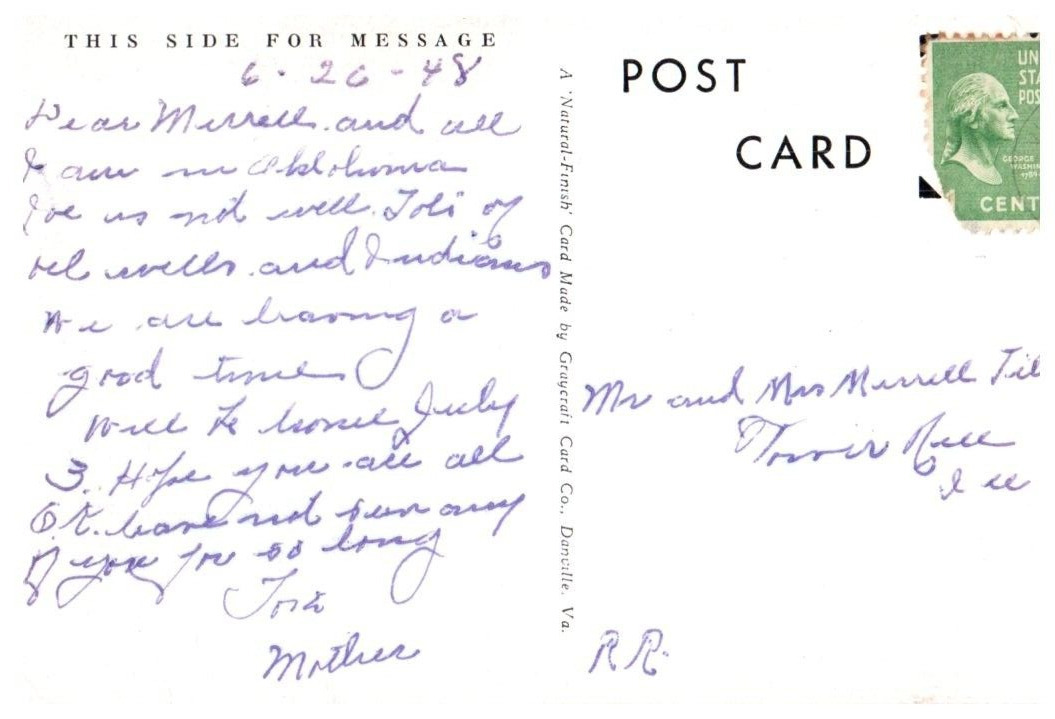 THIS SIDE FOR MESSAGE
6-26-48
Dear Merrell and all
I am in Oklohoma
Joe is not well. Lots of
oil wells and Indians
We are having a
good time
Will be home July
3. Hope you are all
O.K. have not seen any
of you for so long
Love
Mother
A 'Natural-Finish' Card Made by Graycraft Card Co., Danville, Va.
POST
CARD
UN
STA
POS
GEORGE
WASHIN
1789-
1 CENT
Mr and Mrs Merrell Til
Tower Hill
Ill
RR.